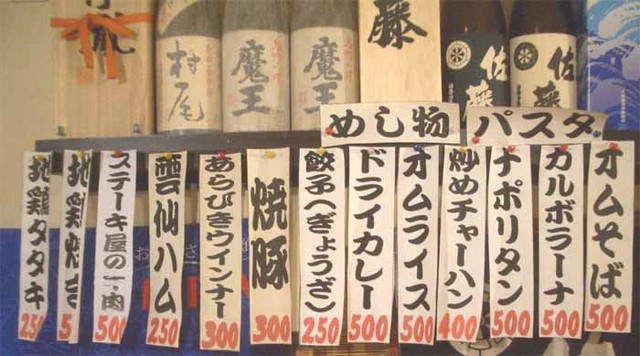 村尾
魔王
魔王
藤
佐藤
佐藤
めし物
パスタ
オムそば
500
カルボラーナ
500
ナポリタン
500
炒めチャーハン
400
オムライス
500
ドライカレー
500
餃子(ぎょうざ)
250
焼豚
300
あらびきウインナー
300
雲仙ハム
250
ステーキ屋の 肉
500
地鶏焼き
5
地鶏タタキ
250